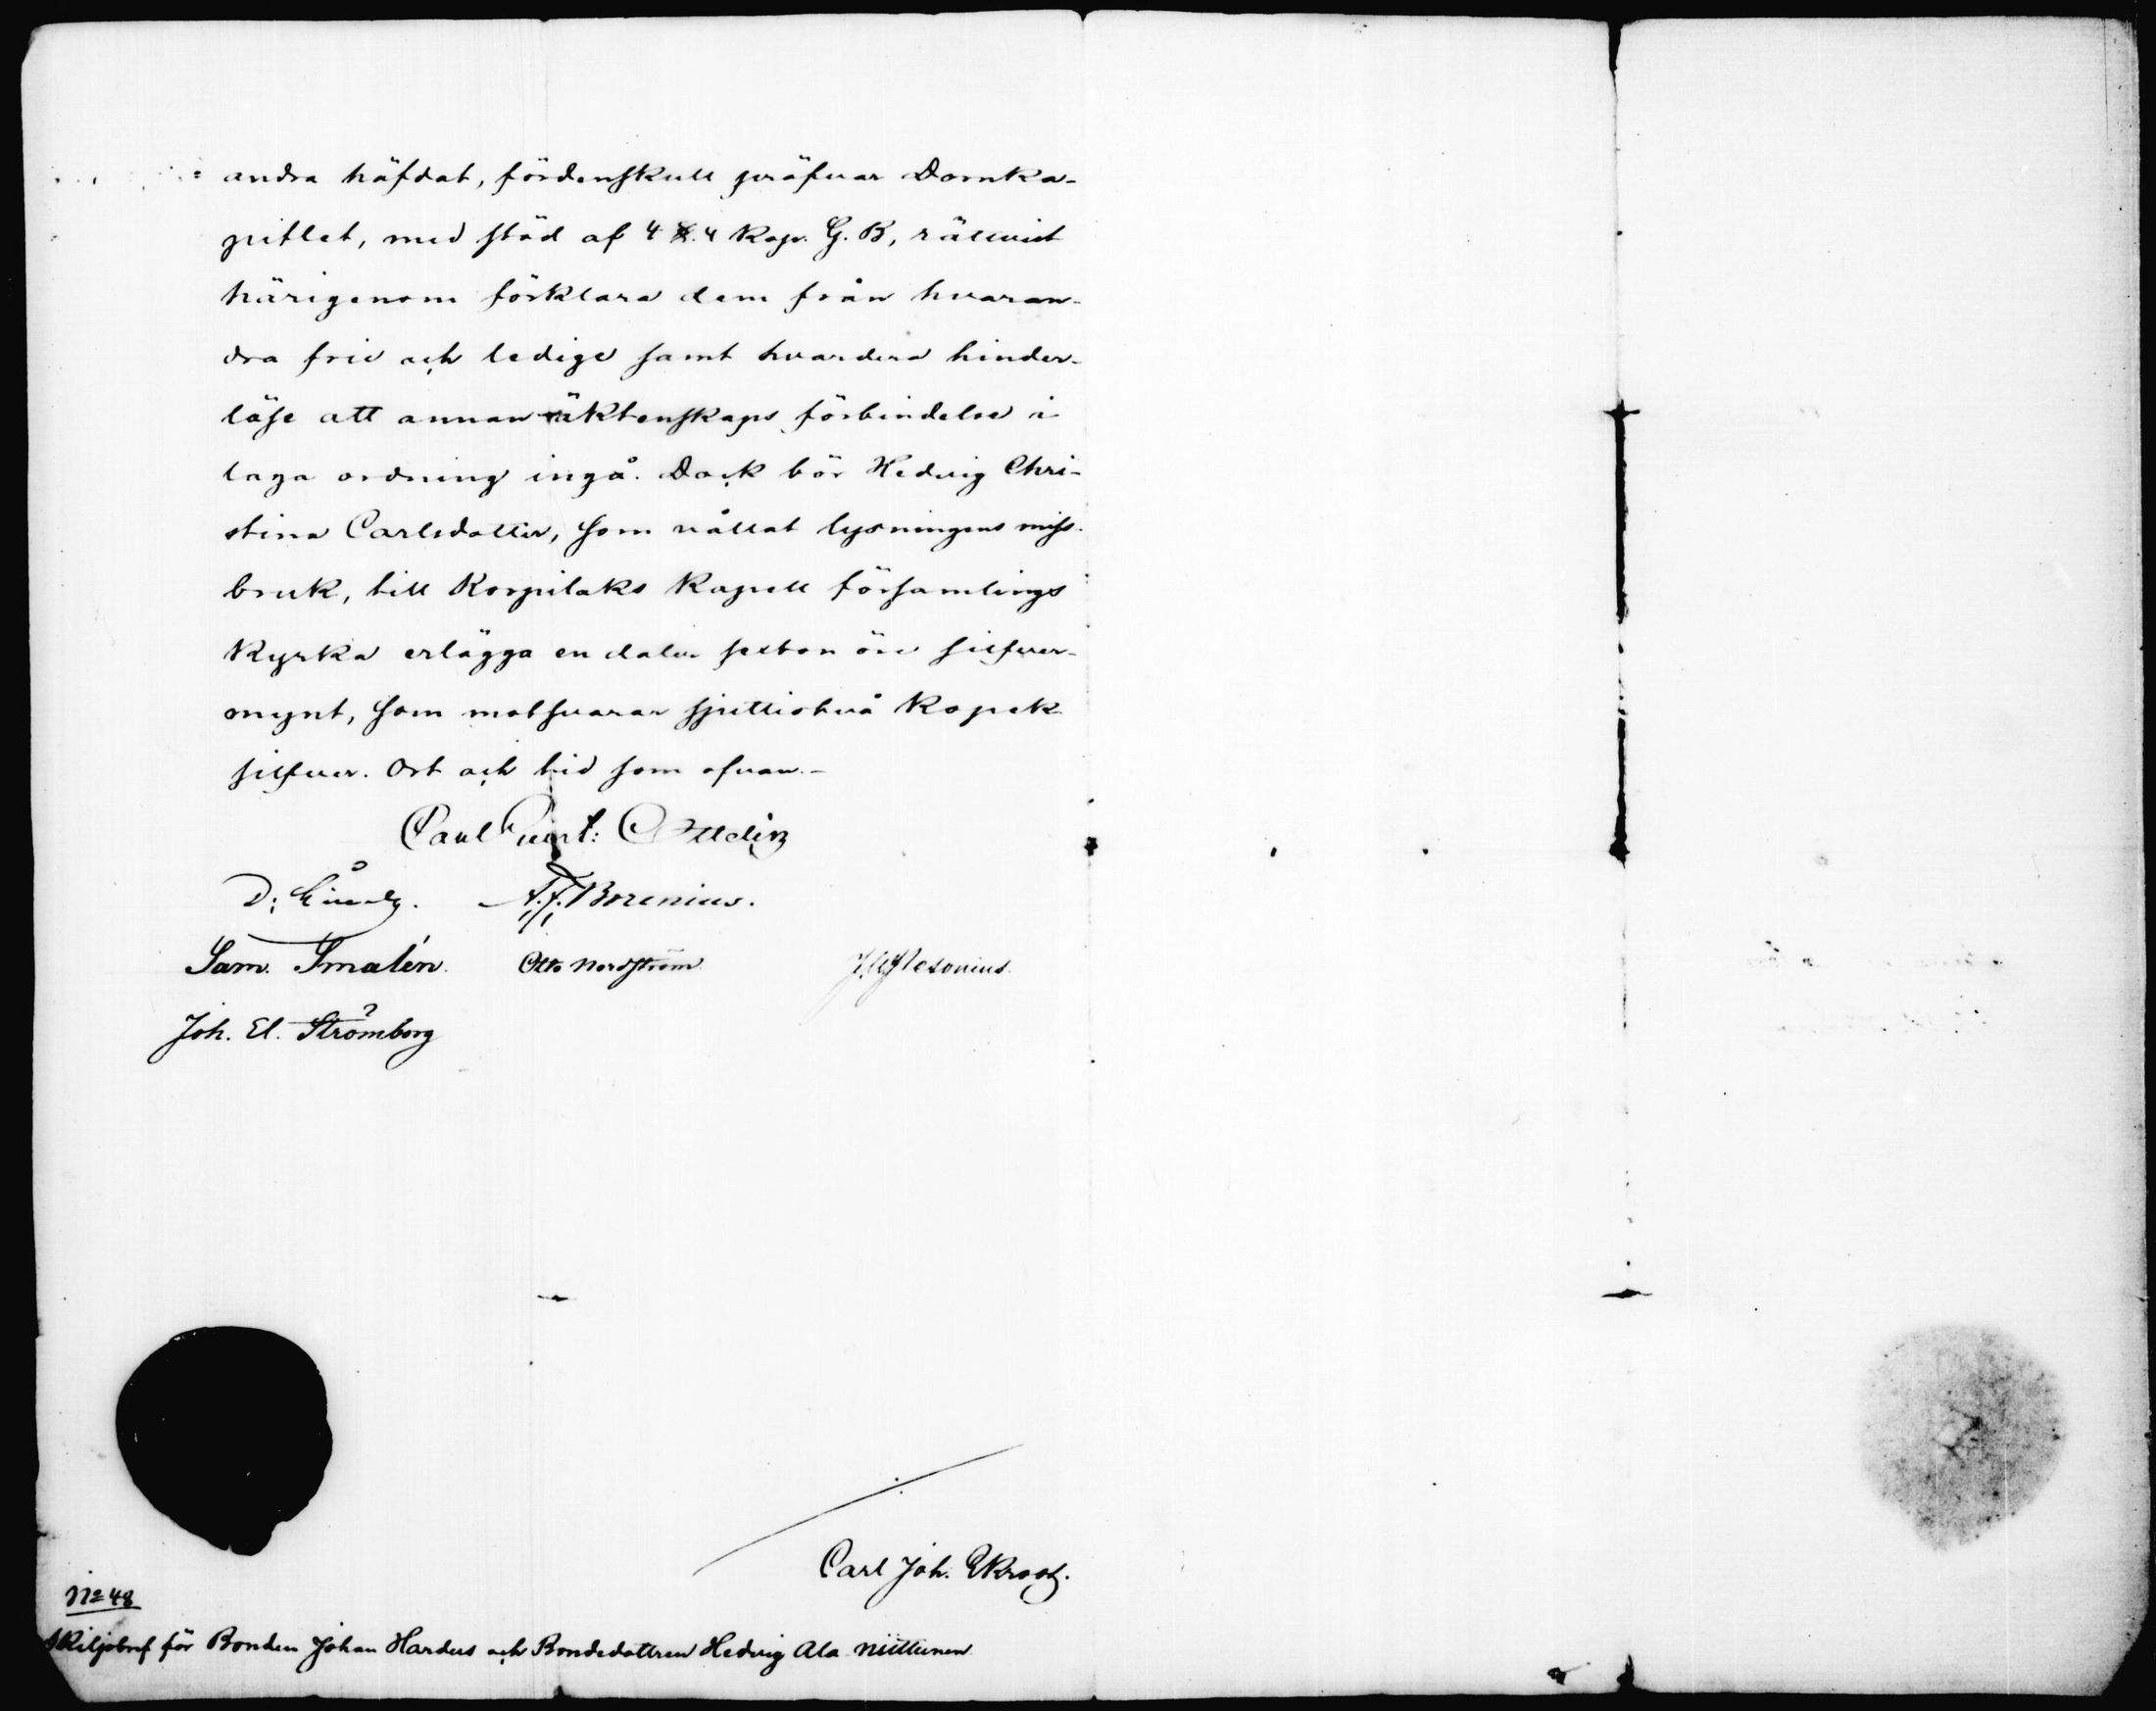 andra häfdat, fördenskull pröfvar Domka-
pitlet, med stöd af 4 §. 4 Kap. G. B, rättvist
härigenom förklara dem från hvaran-
dra frie och ledige samt hvardera hinder-
löse att annan äktenskaps förbindelse i
laga ordning ingå. Dock bör Hedvig Chri-
stina Carlsdotter, som vållat lysningens miss-
bruk, till Korpilaks Kapell församlings
Kyrka erlägga en daler sexton öre silfver-
mynt, som motsvarar sjuttiotvå Kopek
silfver. Ort och tid som ofvan.-
Carl Ottelin
A. J. Borenius.
Sam. Smalén. Otto Nordström J. Alf Vesonius.
Joh. El. Strömborg
Carl Joh. Ekroos.
No 48
Skiljobref för Bonden Johan Hardus och Bondedottren Hedvig Ala Niittunen